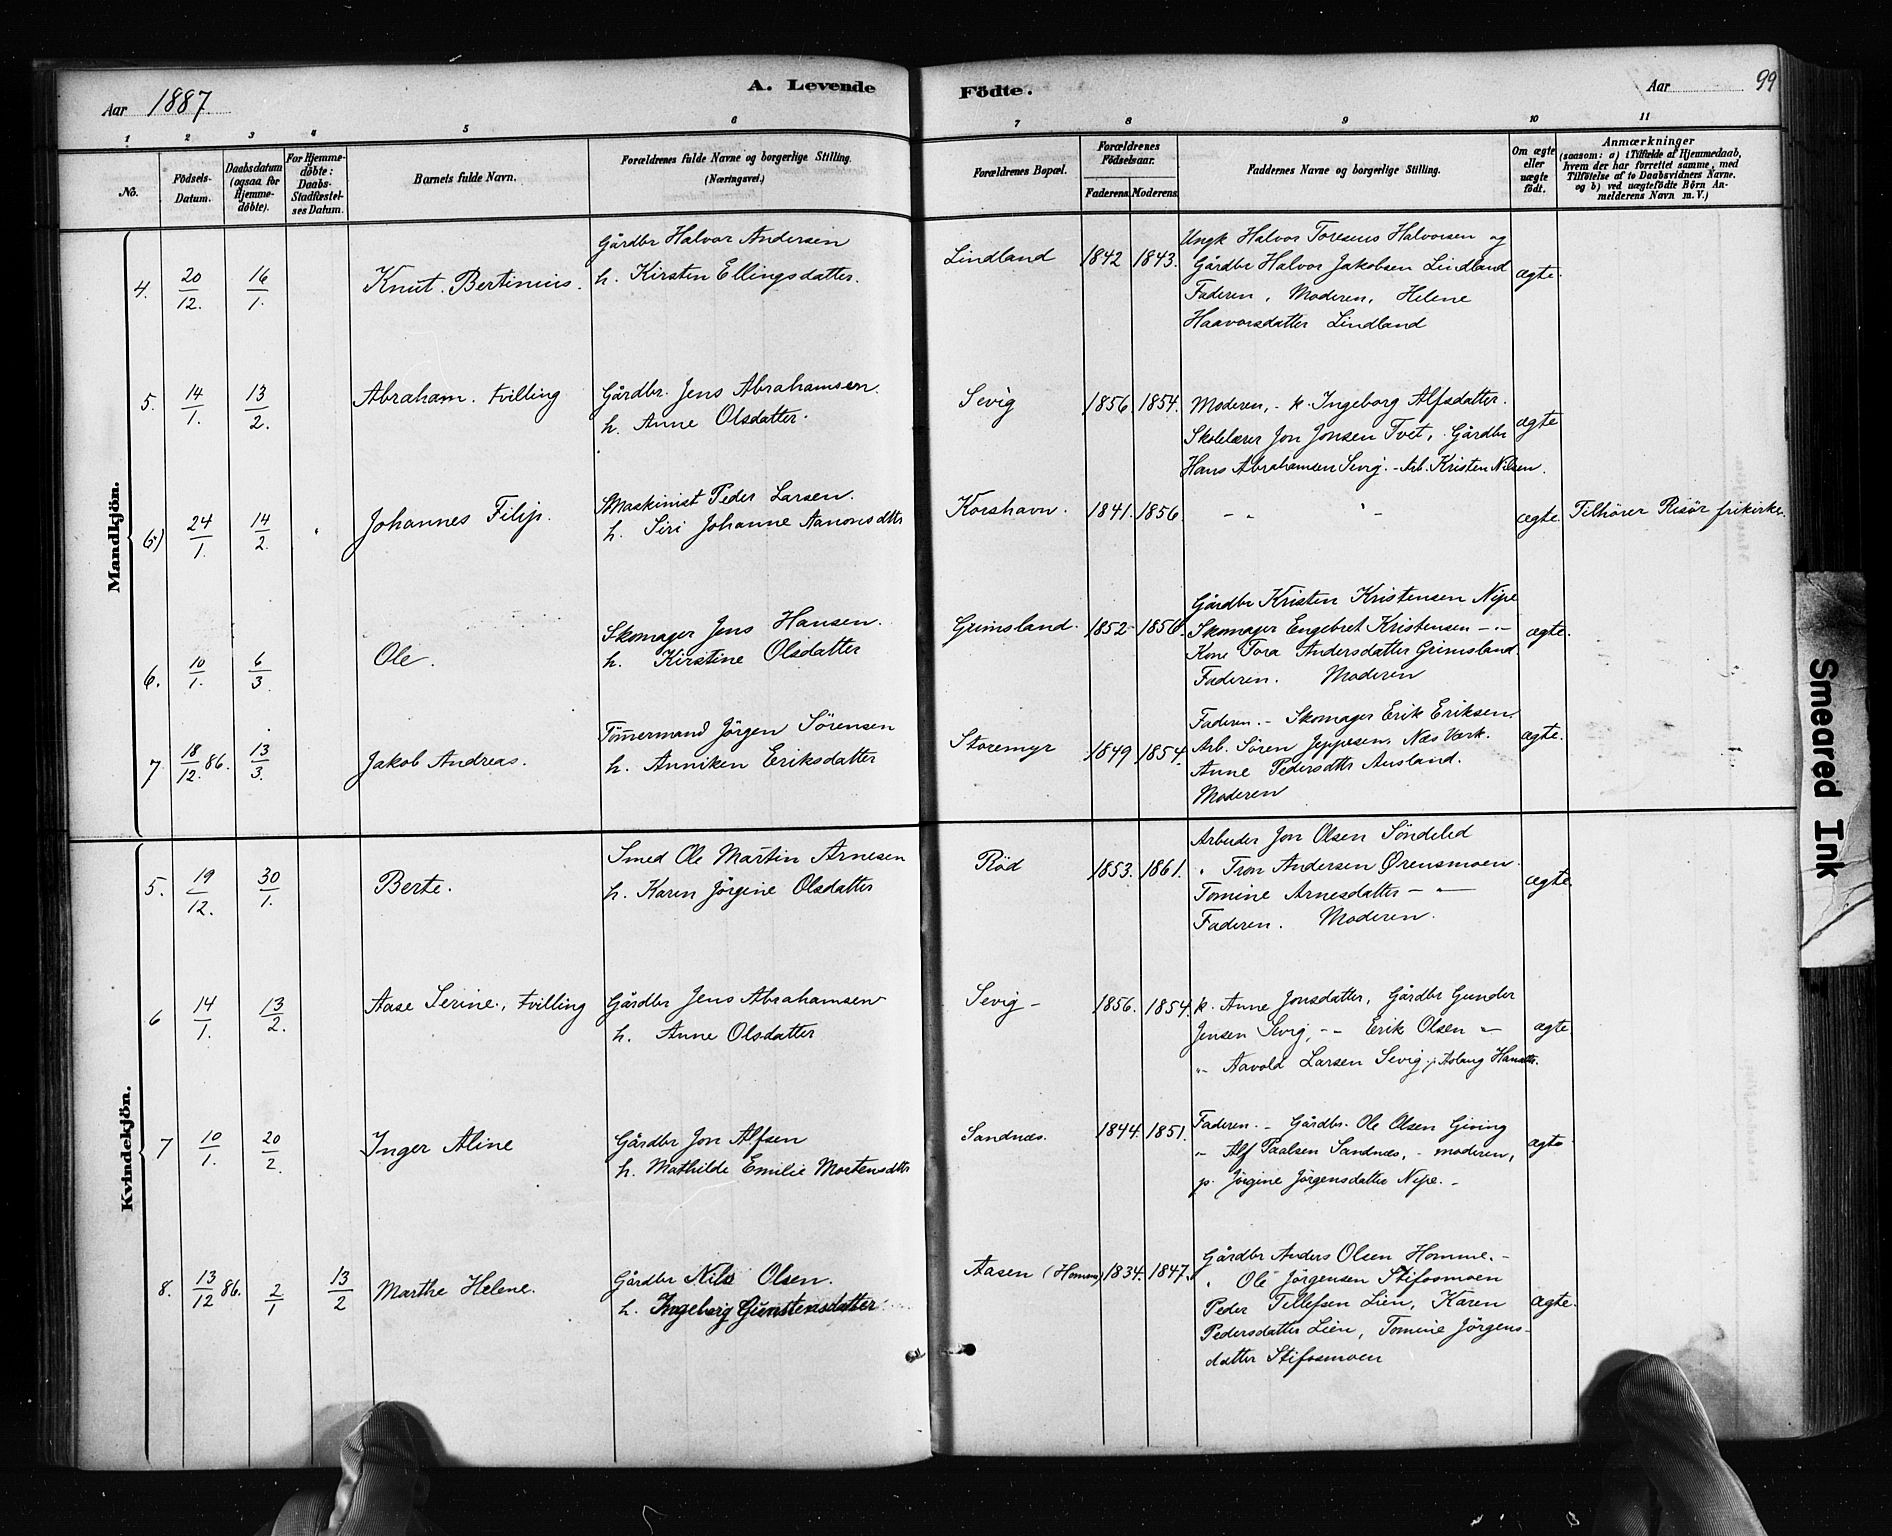 Aar 1887. A. Levende Födte. Aar 99
1 2 3 4 5 6 7 8 9 10 11
No.
Födsels-Datum.
Daabsdatum (ogsaa for Hjemme-döbte).
For Hjemme-döbte: Daabs-Stadfæstel-ses Datum.
Barnets fulde Navn.
Forældrenes fulde Navne og borgerlige Stilling.
(Næringsvei.)
Forældrenes Bopæl.
Forældrenes Födselsaar.
Faderens. Moderens.
Faddernes Navne og borgerlige Stilling.
Om ægte eller uægte födt.
Anmærkninger
(saasom: a) i Tilfælde af Hjemmedaab,
hvem der har forrettet samme, med
Tilföielse af to Daabsvidners Navne.
og b) ved uægtefödte Börn An-
melderens Navn m. V.)
Mandkjön.
4. 20/12. 16/1. Knut Bertinius.
Gårdbr Halvor Andersen
h. Kirsten Ellingsdatter.
Lindland 1842 1843.
Ungk Halvor Toresens Halvorsen og
Gårdbr Halvor Jakobsen Lindland
Faderen, Moderen, Helene
Haavorsdatter Lindland
ægte.
5. 14/1. 13/2. Abraham. tvilling
Gårdbr. Jens Abrahamsen.
h. Anne Olsdatter.
Sevig 1856 1854.
Moderen, - k. Ingeborg Alfsdatter.
Skolelærer Jon Jonsen Tvet, Gårdbr
Hans Abrahamsen Sevig. - Arb. Kristen Nilsen.
ægte
6) 24/1. 14/2. Johannes Filip.
Maskinist Peder Larsen.
h. Siri Johanne Aanonsdtr
Korshavn. 1841. 1856. - „ „ -
ægte. Tilhører Risør frikirke.
6. 10/1. 6/3. Ole.
Skomager Jens Hansen.
h. Kirstine Olsdatter
Grimsland. 1852 1856.
Gårdbr Kristen Kristensen Nipe
Skomager Engebret Kristensen - „ -
Kone Tora Andersdatter Grimsland.
Faderen. Moderen
ægte.
7 18/12. 86. 13/3. Jakob Andreas.
Tömermand Jörgen Sörensen
h. Anniken Eriksdatter
Storemyr 1849 1854.
Faderen. - Skomager Erik Eriksen.
Arb. Sören Jeppesen, Næs Værk.
Anne Pedersdtr Ausland.
Moderen
ægte.
Kvindekjön.
5. 19/12. 30/1. Berte.
Smed Ole Martin Arnesen
h. Karen Jörgine Olsdatter
Röd 1853. 1861.
Arbeider Jon Olsen Söndeled
„ Tron Andersen Ørensmoen.
Tomine Arnesdatter - „ -
Faderen. Moderen.
ægte.
6 14/1. 13/2. Aase Serine., tvilling
Gårdbr Jens Abrahamsen
h. Anne Olsdatter
Sevig - 1856. 1854.
k. Anne Jonsdatter, Gårdbr Gunder
Jensen Sevig, - - Erik Olsen „
„ Aavold Larsen Sevig,
ægte.
7 10/1. 20/2. Inger Aline
Gårdbr Jon Alfsen
h. Mathilde Emilie Mortensdtr
Sandnæs. 1844. 1851.
Faderen. - Gårdbr. Ole Olsen Giving
„ Alf Paalsen Sandnæs, - moderen,
p. Jörgine Jörgensdatter Nipe. -
ægte
8. 13/12 86. 2/1 13/2 Marthe Helene.
Gårdbr Nils Olsen.
h. Ingeborg Gunstensdatter
Aasen (Homme) 1834. 1847.
Gårdbr Anders Olsen Homme. -
„ Ole Jörgensen Stifosmoen
Peder Tellefsen Lien, Karen
Pedersdatter Lien, Tomine Jörgens-
datter Stifosmoen
ægte.
Smeared Ink